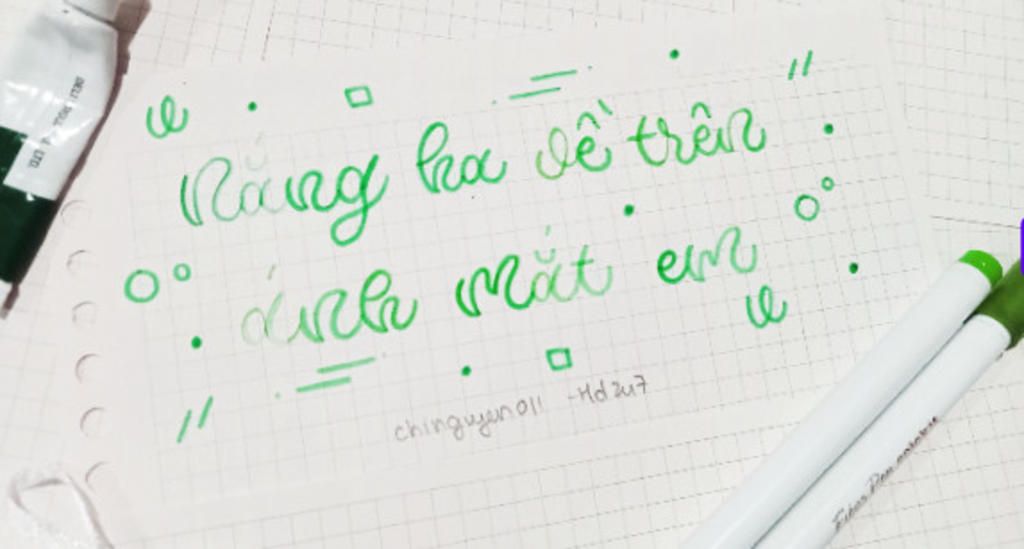 Nắng hạ về trên
ánh mắt em
chinguyen011 -Hd247
Fiber Pen